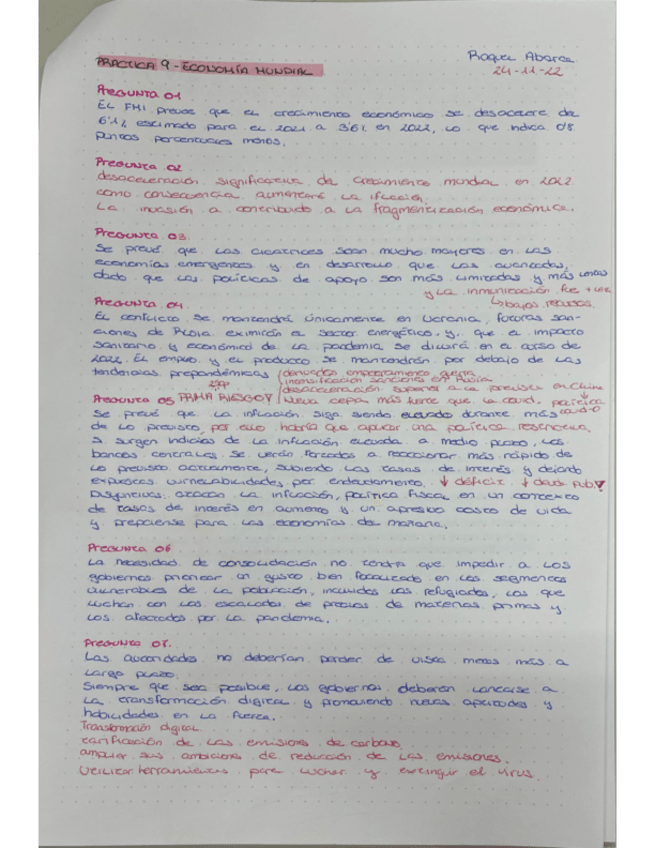 Raquel Abarca
PRÁCTICA 9 - ECONOMÍA MUNDIAL
24-11-22
PREGUNTA 01
EL FMI prevee que el crecimiento económico se desacelere de
6'1% estimado para el 2021 a 3'6% en 2022, lo que indica 0'8
puntos porcentuales menos.
PREGUNTA 02
desaceleración significativa de crecimiento mundial en 2022
como consecuencia aumentará la
La invasión a contribuido a la fragmentización económica.
PREGUNTA 03
Se prevé que las cicatrices sean mucho mayores en las
economías emergentes y en desarrollo que las avanzadas,
dado que las políticas de apoyo son más limitadas y más lentas
y la inmunización fue + lenta
↳ bajos recursos
PREGUNTA 04
El conflicto se mantendrá únicamente en Ucrania, futuras san-
ciones de Rusia eximirán al sector energético, y, que el impacto
sanitario y económico de la pandemia se diluirá en el curso de
2022. El empleo y el producto se mantendrán por debajo de las
tendencias prepandémicas
empeoramiento guerra
intensificación sanciones en Rusia
desaceleración superior a la prevista en China
Nueva cepa más fuerte que la covid. política
PREGUNTA 05 PRIMA RIESGO
Se prevé que la inflación siga siendo elevado durante más
de lo previsto, por ello habría que aplicar una política restrictiva.
Si surgen indicios de la inflación elevada a medio plazo, los
bancos centrales se verán forzados a reaccionar más rápido de
lo previsto actualmente, subiendo las tasas de interés y dejando
expuestas vulnerabilidades por endeudamiento. ↓ déficit ↓ deuda pub.
Disyuntivas: atacar la inflación, política fiscal en un contexto
de tasas de interés en aumento y un apresivo costo de vida
y prepararse para las economías de mañana.
PREGUNTA 06
La necesidad de consolidación no tendría que impedir a los
gobiernos priorizar un gasto bien focalizado en los segmentos
vulnerables de la población, incluidos los refugiados, los que
luchan con las escaladas de precios de materias primas y
los afectados por la pandemia.
PREGUNTA 07.
Las autoridades no deberían perder de vista metas más a
largo plazo.
Siempre que sea posible, los gobiernos deberán lanzarse a
la transformación digital y promoviendo nuevas aptitudes y
habilidades en la fuerza.
Transformación digital.
tarificación de las emisiones de carbono
ampliar sus ambiciones de reducción de las emisiones.
Utilizar herramientas para luchar y extinguir el virus.